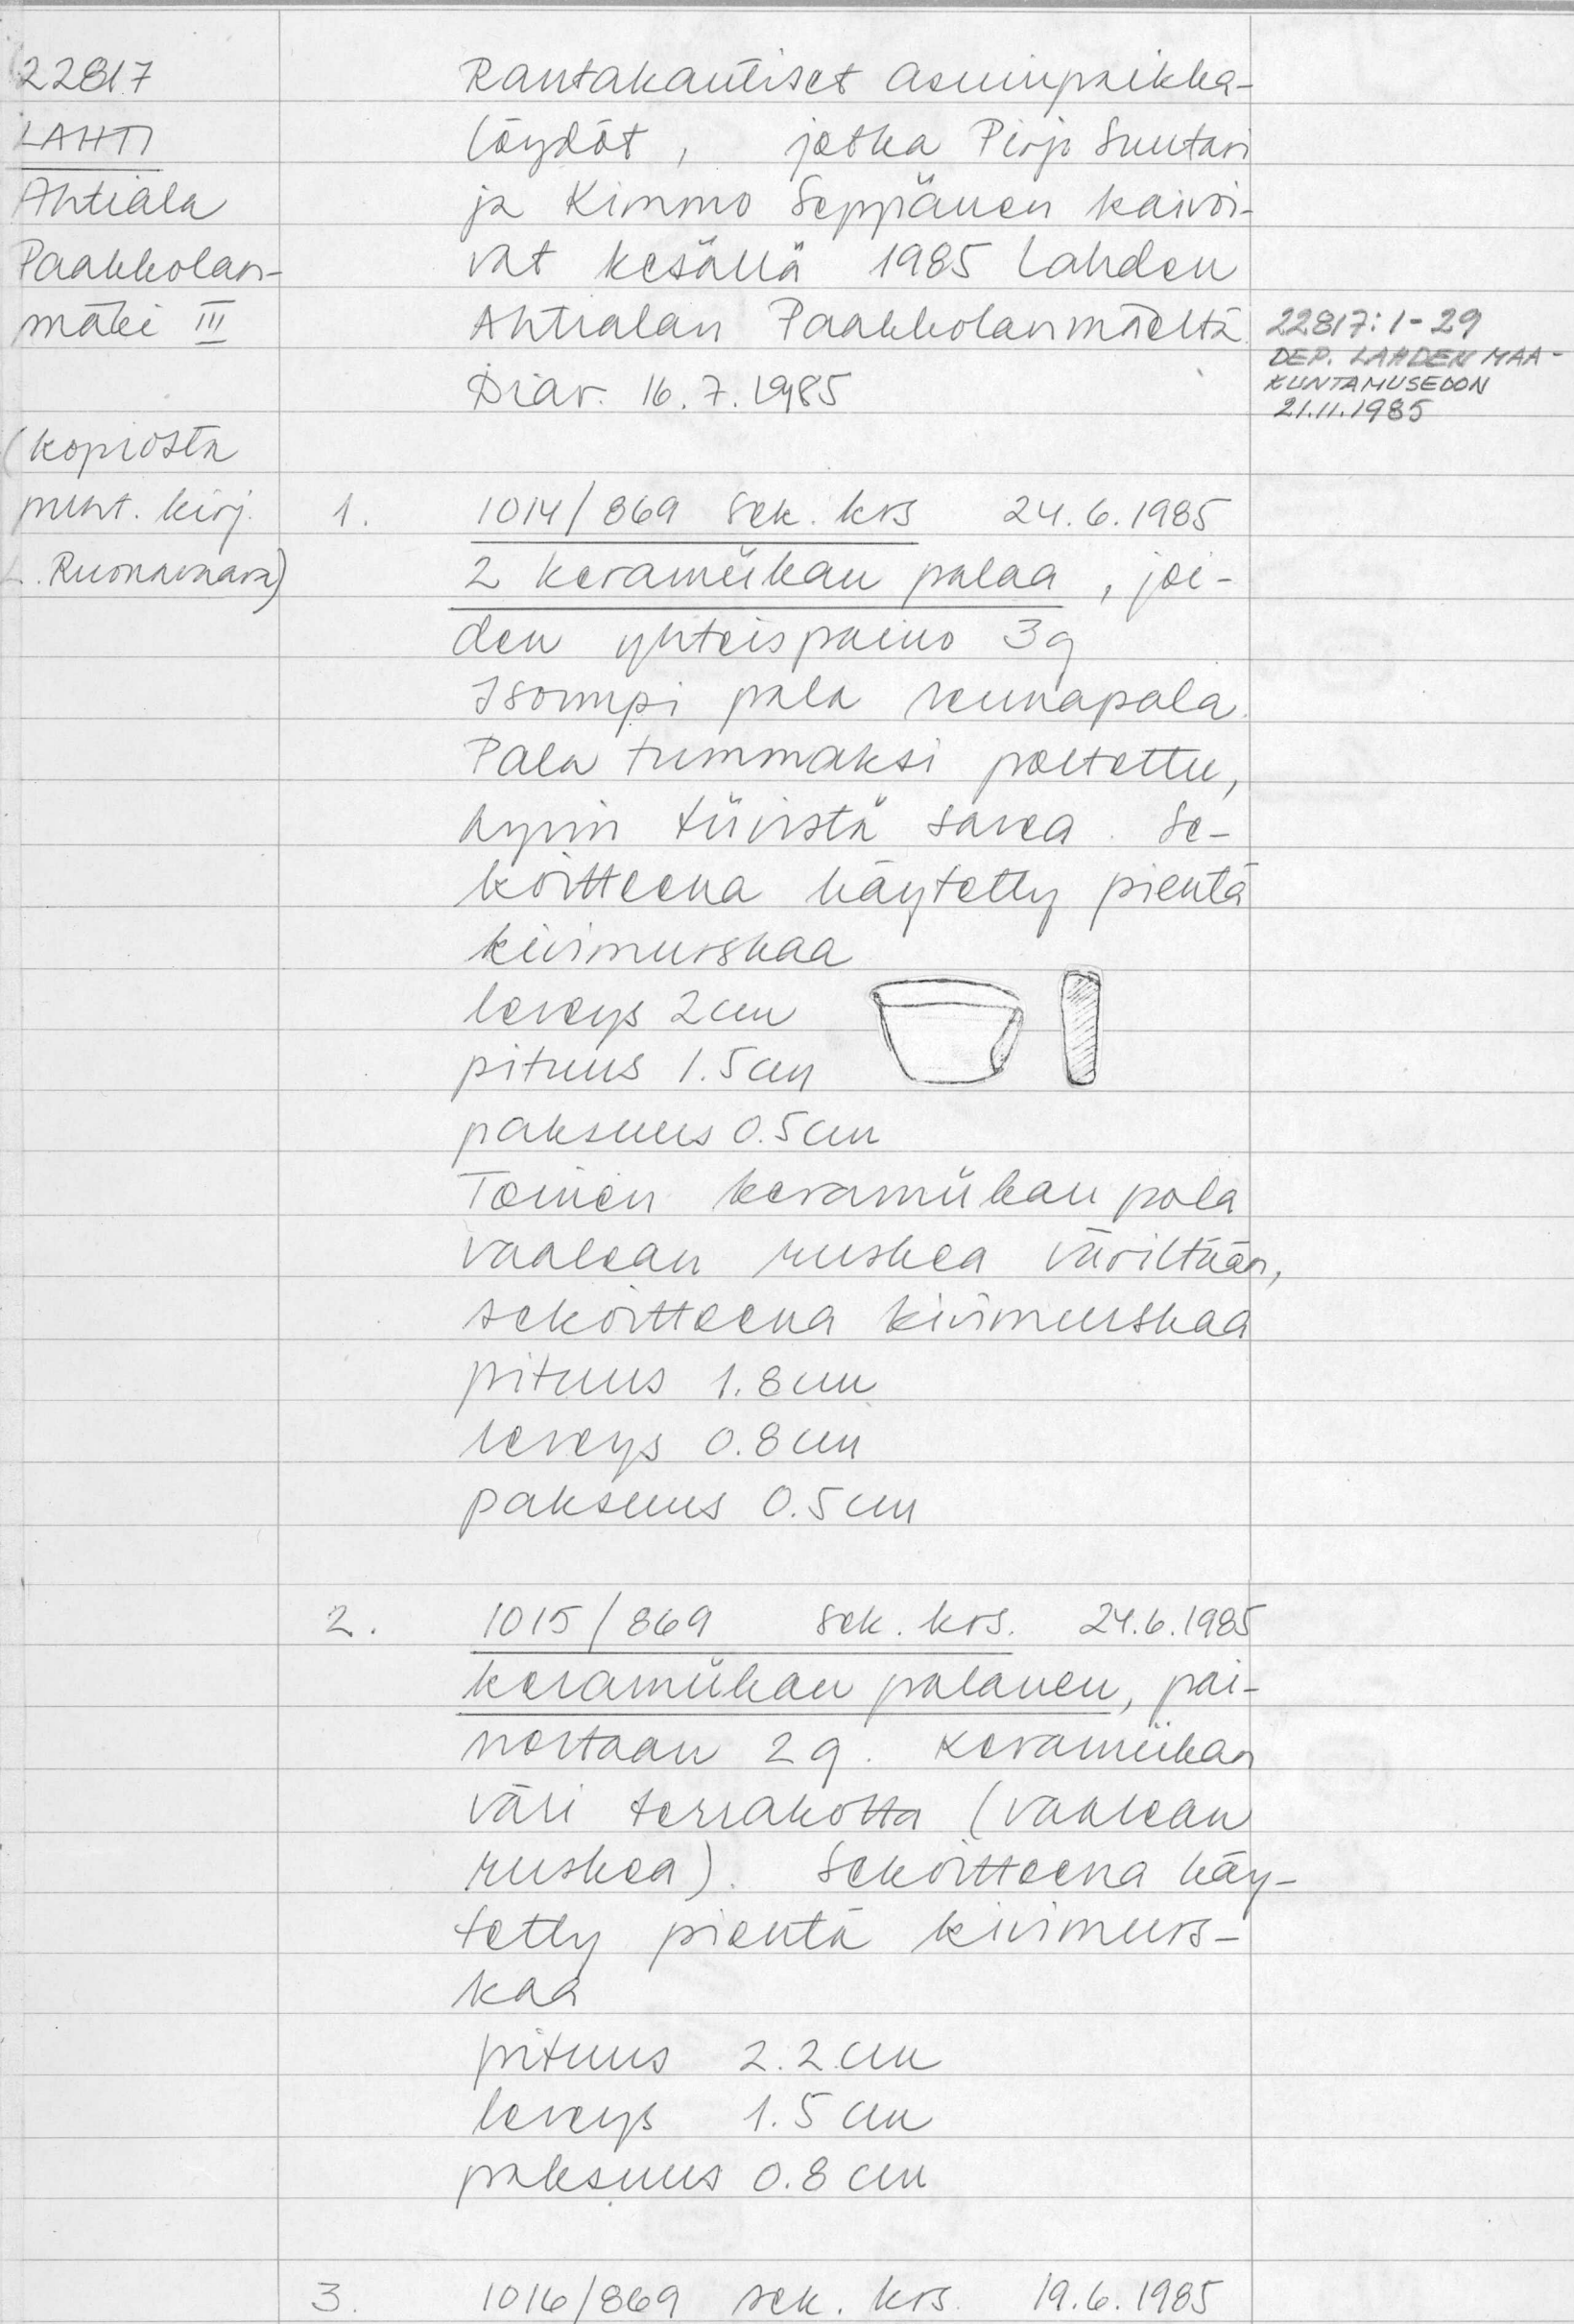 22817
LAHTI
Ahtiala
Paakkolan-
mäki III
(kopiosta
puht. kirj.
L. Ruonavaara)
Rautakautiset asuinpaikka-
löydöt, jotka Pirjo Suutari
ja Kimmo Seppänen kaivoi-
vat kesällä 1985 Lahden
Ahtialan Paakkolanmäeltä
Diar. 16.7.1985
22817:1-29
DEP. LAHDEN MAA-
KUNTAMUSEOON
21.11.1985
1. 1014/869 sek. krs 24.6.1985
2 keramiikan palaa, joi-
den yhteispaino 3g
Isompi pala reunapala.
Pala tummaksi poltettu,
hyvin tiivistä savea. Se-
koitteena käytetty pientä
kivimurskaa
leveys 2cm
pituus 1.5cm
paksuus 0.5cm
Toinen keramiikan pala
vaalean ruskea väriltään,
sekoitteena kivimurskaa
pituus 1.8cm
leveys 0.8cm
paksuus 0.5cm
2. 1015/869 sek. krs. 24.6.1985
keramiikan palanen, pai-
noltaan 2g. Keramiikan
väri terrakotta (vaalean
ruskea). Sekoitteena käy-
tetty pientä kivimurs-
kaa
pituus 2.2cm
leveys 1.5cm
paksuus 0.8cm
3. 1016/869 sek. krs. 19.6.1985